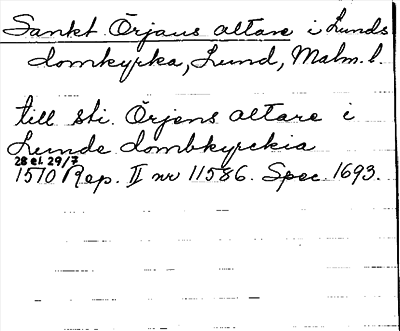 Sankt Örjans altare i Lunds
domkyrka, Lund, Malm. l.
till sti. Örjens altare i
Lunde dombkyrckia
28 el. 29/7
1510 Rep. II nr 11586. Spec. 1693.